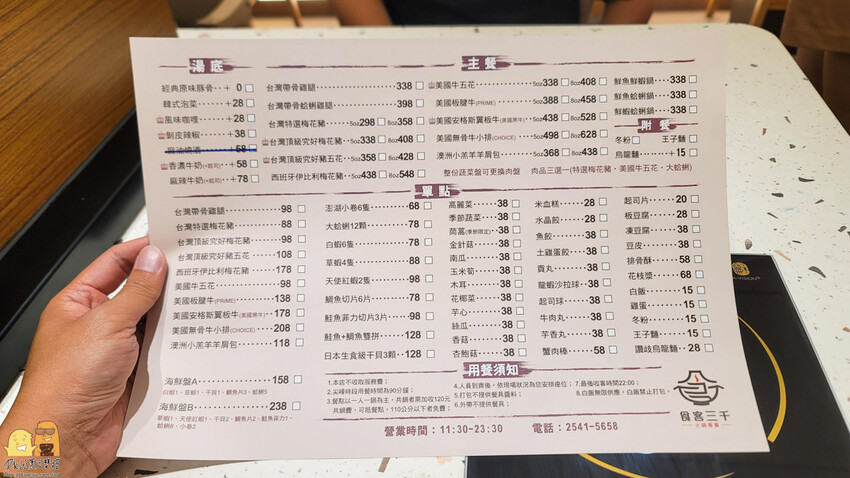 湯底
經典原味豚骨‥+ 0
韓式泡菜‥‥‥+ 28
風味咖哩‥‥+ 28
剝皮辣椒‥‥+ 38
麻油燒酒‥‥‥+58
香濃牛奶(+起司)‥+ 58
麻辣牛奶(+起司)‥+ 78
主餐
台灣帶骨雞腿 338
台灣帶骨蛤蜊雞腿 398
台灣特選梅花豬 5oz298 8oz358
台灣頂級究好梅花豬 5oz338 8oz408
台灣頂級究好豬五花 5oz358 8oz428
西班牙伊比利梅花豬 5oz438 8oz548
美國牛五花 5oz338 8oz408
美國板腱牛(PRIME) 5oz388 8oz458
美國安格斯翼板牛(美國黑牛) 5oz438 8oz528
美國無骨牛小排(CHOICE) 5oz498 8oz628
澳洲小羔羊羊肩包 5oz368 8oz438
整份蔬菜盤可更換肉盤
鮮魚鮮蝦鍋 338
鮮魚蛤蜊鍋 338
鮮蝦蛤蜊鍋 338
附餐
冬粉 王子麵
烏龍麵 + 15
肉品三選一(特選梅花豬、美國牛五花、大蛤蜊)
單點
台灣帶骨雞腿 98
台灣特選梅花豬 88
台灣頂級究好梅花豬 98
台灣頂級究好豬五花 108
西班牙伊比利梅花豬 178
美國牛五花 98
美國板腱牛(PRIME) 138
美國安格斯翼板牛(美國黑牛) 178
美國無骨牛小排(CHOICE) 208
澳洲小羔羊羊肩包 118
海鮮盤A 158
白蝦1、草蝦1、干貝1、鯛魚片3、蛤蜊5
海鮮盤B 238
草蝦1、天使紅蝦1、干貝2、鯛魚片2、鮭魚菲力1、
蛤蜊8、小卷2
澎湖小卷6隻 68
大蛤蜊12顆 78
白蝦6隻 78
草蝦4隻 88
天使紅蝦2隻 98
鯛魚切片6片 78
鮭魚菲力切片3片 128
鮭魚+鯛魚雙拼 128
日本生食級干貝3顆 128
高麗菜 38
季節蔬菜 38
茼蒿(季節限定) 38
金針菇 38
南瓜 38
玉米筍 38
木耳 38
花椰菜 38
芋心 38
絲瓜 38
香菇 38
杏鮑菇 38
米血糕 28
水晶餃 28
魚餃 38
土雞蛋餃 38
貢丸 38
龍蝦沙拉球 38
起司球 38
牛肉丸 38
芋香丸 38
蟹肉棒 58
起司片 20
板豆腐 28
凍豆腐 28
豆皮 38
排骨酥 58
花枝漿 68
白飯 15
雞蛋 15
冬粉 15
王子麵 15
讚岐烏龍麵 28
用餐須知
1.本店不收取服務費；
2.尖峰時段用餐時間為90分鐘；
3.餐點以一人一鍋為主，共鍋者需加收120元
共鍋費，可抵餐點，110公分以下者免費；
4.人員到齊後，依現場狀況為您安排座位；
5.打包不提供餐具醬料；
6.外帶不提供餐具；
7.最後收客時間22:00；
8.白飯無限供應，白飯禁止打包。
營業時間：11:30-23:30 電話：2541-5658
食客三千
火鍋專賣